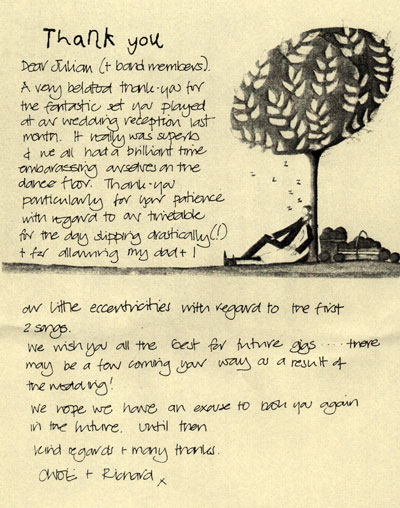 Thank you
Dear Julian (+ band members).
A very belated thank-you for
the fantastic set you played
at our wedding reception last
month. It really was superb
& we all had a brilliant time
embarassing ourselves on the
dance floor. Thank-you
particularly for your patience
with regard to our timetable
for the day slipping drastically(!)
+ for allowing my dad + I
our little eccentricities with regard to the first
2 songs.
We wish you all the best for future gigs .... there
may be a few coming your way as a result of
the wedding!
We hope we have an excuse to book you again
in the future. Until then
Kind regards + many thanks.
+ Richard x